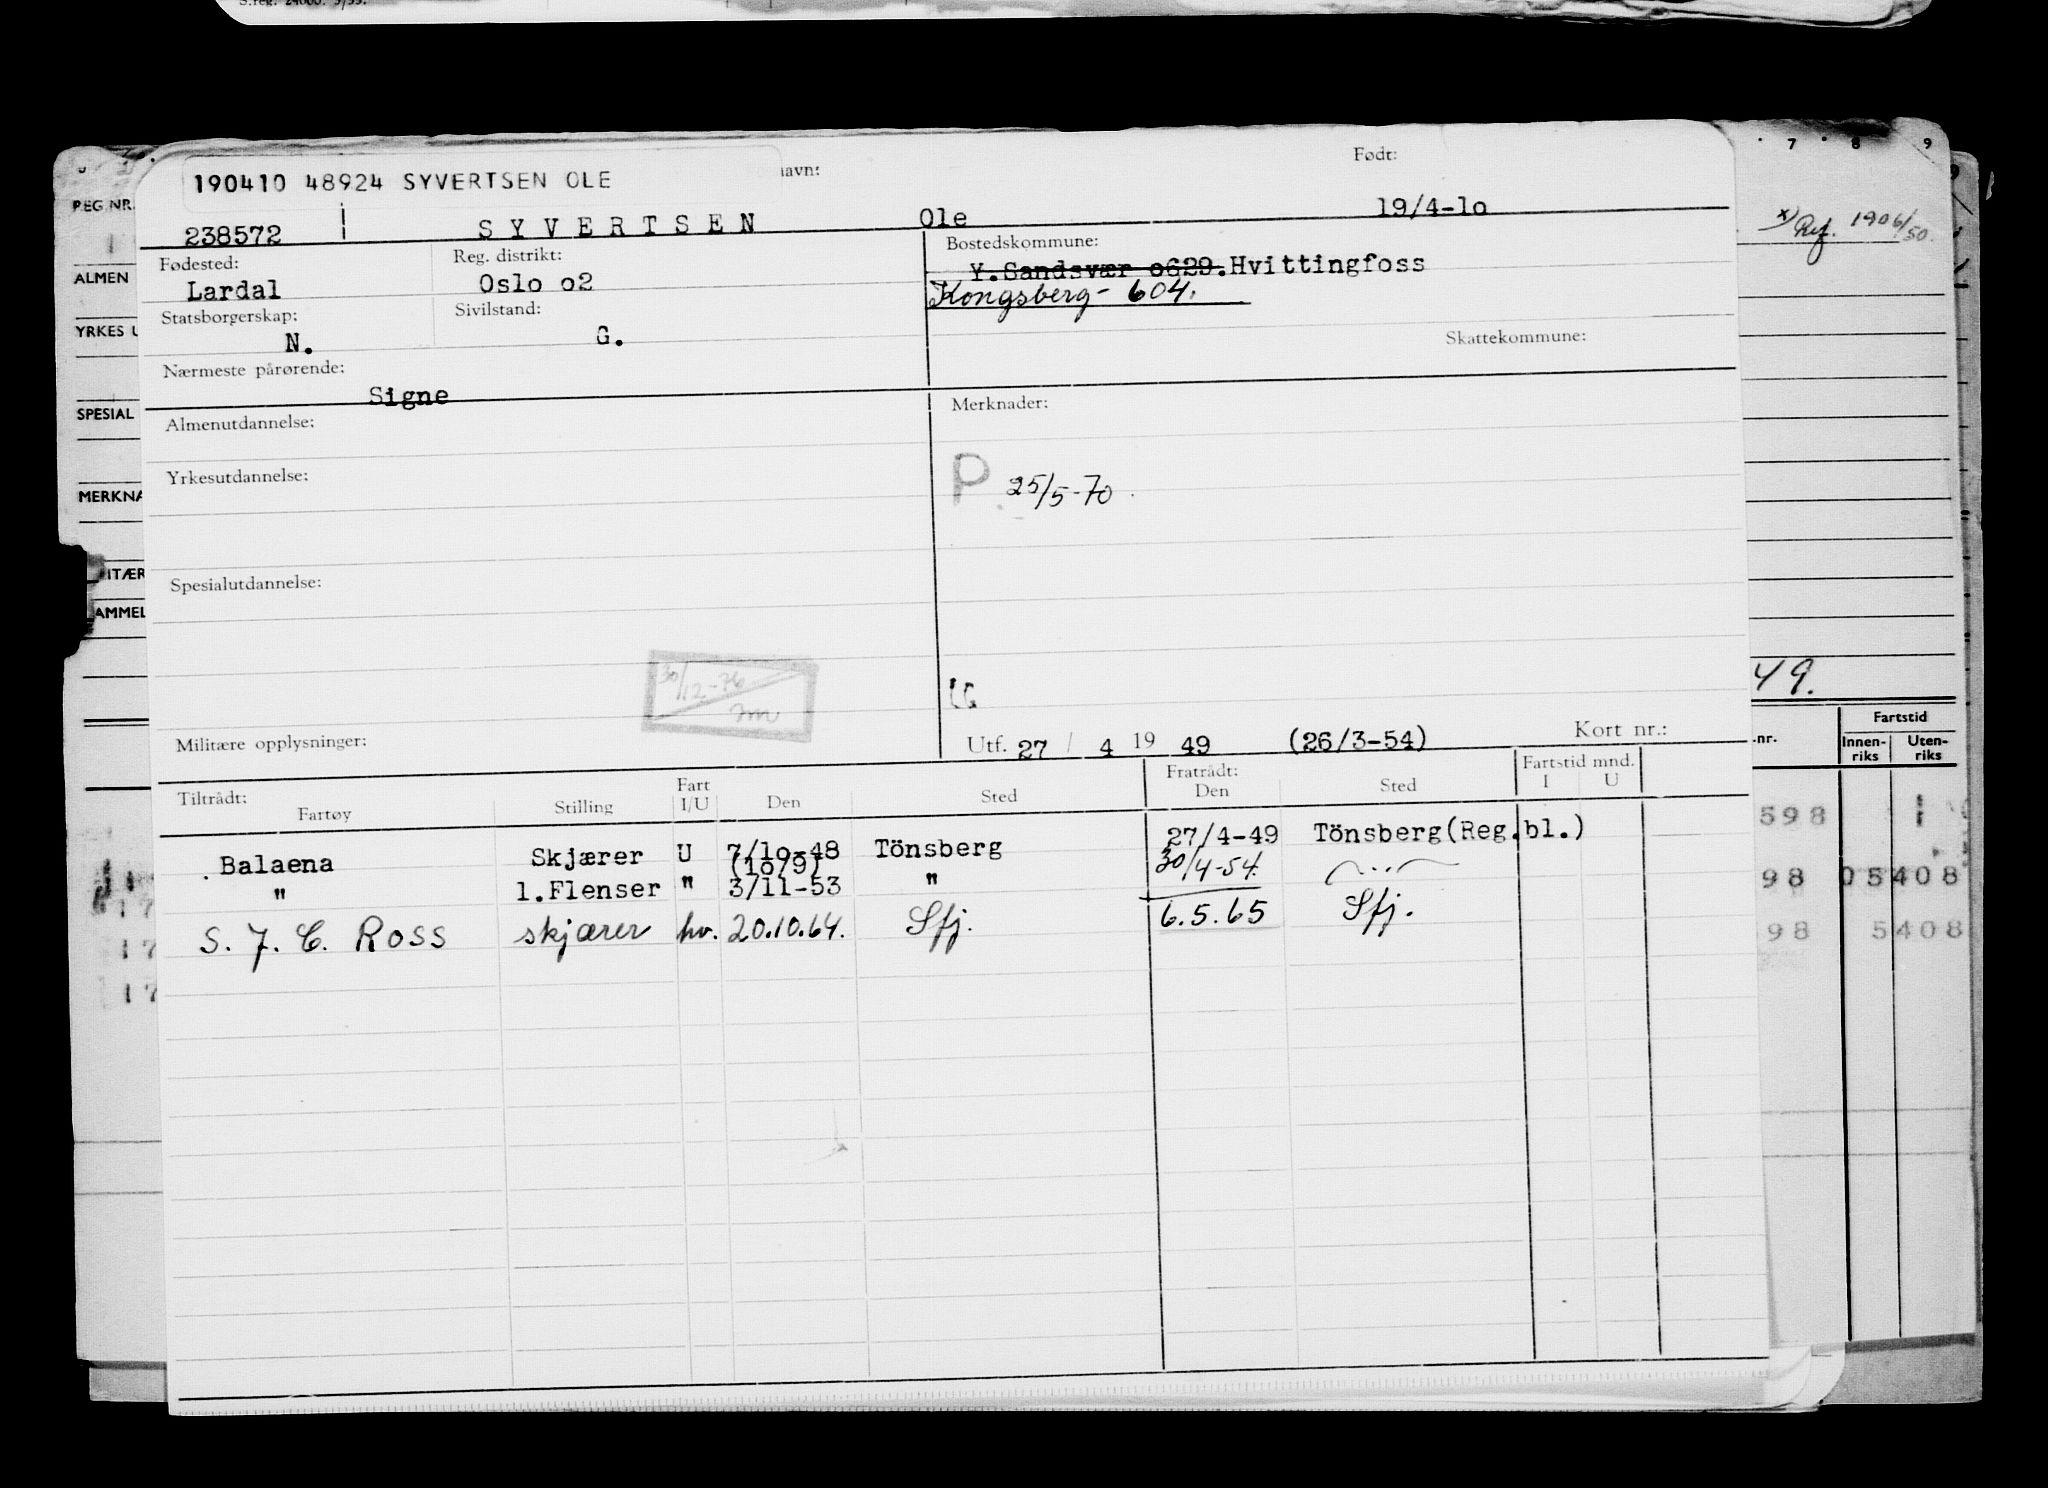 S.reg. 24000. 5/55.
190410 48924 SYVERTSEN OLE
navn:
Født:
238572 SYVERTSEN Ole 19/4-1o
Fødested: Reg. distrikt: Bostedskommune:
Lardal Oslo o2 Y.Sandsvær o629.Hvittingfoss
Kongsberg - 604.
Statsborgerskap: Sivilstand:
N. G.
Skattekommune:
Nærmeste pårørende:
Signe
Almenutdannelse: Merknader:
Yrkesutdannelse:
P 25/5-70
Spesialutdannelse:
30/12-76
Militære opplysninger: Utf. 27 / 4 19 49 (26/3-54) Kort nr.:
Tiltrådt: Fratrådt: Fartstid mnd.
Fartøy Stilling Fart I/U Den Sted Den Sted I U
Balaena Skjærer U 7/1o-48 Tönsberg 27/4-49 Tönsberg(Reg.bl.)
(1o/9) 30/4-54.
" 1.Flenser " 3/11-53 "
S. J. C. ROSS skjærer hv. 20.10.64. Sfj. 6.5.65 Sfj.
REG.NR.
ALMEN
YRKES U
SPESIAL
MERKNA
ITÆR
AMMEL
7 8 9
x) Ref. 1906/50.
49.
-nr. Fartstid
Innen-riks Uten-riks
598 1
98 05408
98 5408
17
17
17